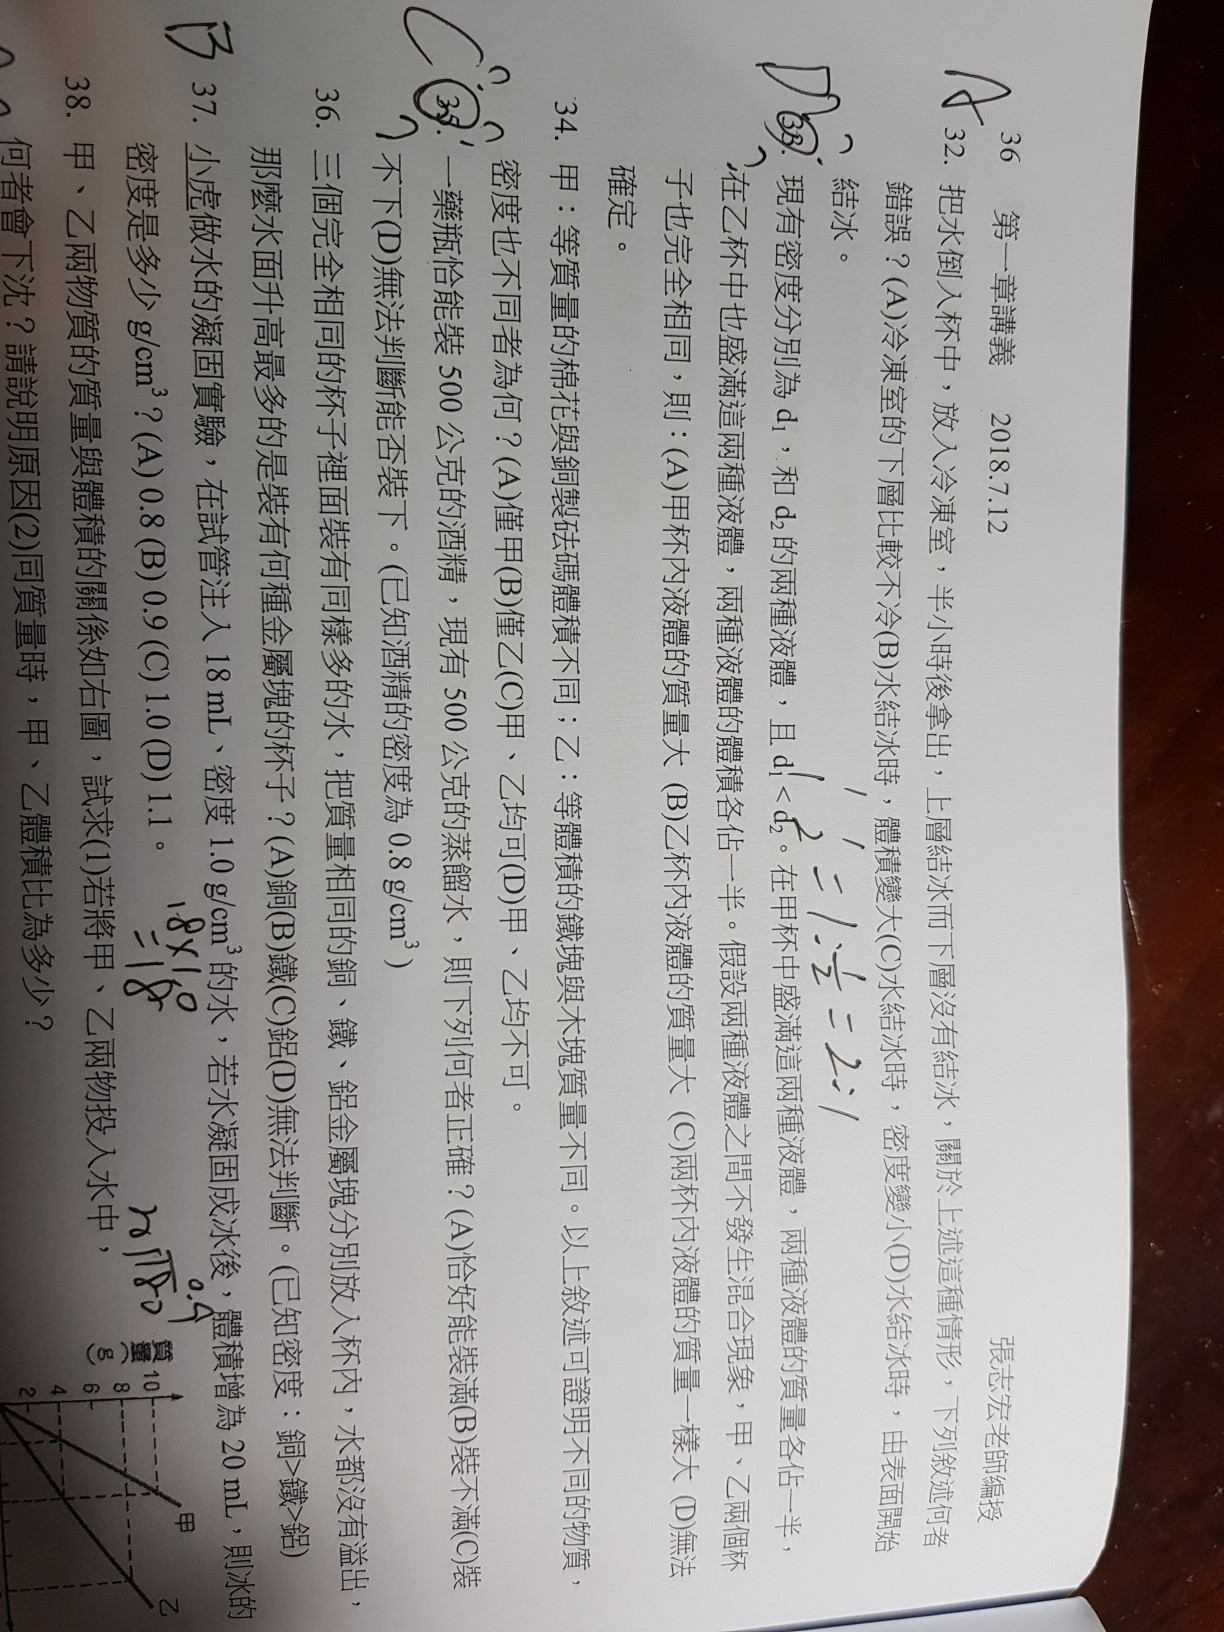 36　第一章講義　2018.7.12　張志宏老師編授
A 32. 把水倒入杯中，放入冷凍室，半小時後拿出，上層結冰而下層沒有結冰，關於上述這種情形，下列敘述何者
錯誤？(A)冷凍室的下層比較不冷(B)水結冰時，體積變大(C)水結冰時，密度變小(D)水結冰時，由表面開始
結冰。
1 : 2 = 1 : 1/2 = 2 : 1
D 33. 現有密度分別為 d1，和 d2 的兩種液體，且 d1 < d2。在甲杯中盛滿這兩種液體，兩種液體的質量各佔一半，
在乙杯中也盛滿這兩種液體，兩種液體的體積各佔一半。假設兩種液體之間不發生混合現象，甲、乙兩個杯
子也完全相同，則：(A)甲杯內液體的質量大 (B)乙杯內液體的質量大 (C)兩杯內液體的質量一樣大 (D)無法
確定。
34. 甲：等質量的棉花與銅製砝碼體積不同；乙：等體積的鐵塊與木塊質量不同。以上敘述可證明不同的物質，
密度也不同者為何？(A)僅甲(B)僅乙(C)甲、乙均可(D)甲、乙均不可。
C 35. 一藥瓶恰能裝 500 公克的酒精，現有 500 公克的蒸餾水，則下列何者正確？(A)恰好能裝滿(B)裝不滿(C)裝
不下(D)無法判斷能否裝下。(已知酒精的密度為 0.8 g/cm³)
36. 三個完全相同的杯子裡面裝有同樣多的水，把質量相同的銅、鐵、鋁金屬塊分別放入杯內，水都沒有溢出，
那麼水面升高最多的是裝有何種金屬塊的杯子？(A)銅(B)鐵(C)鋁(D)無法判斷。(已知密度：銅>鐵>鋁)
B 37. 小虎做水的凝固實驗，在試管注入 18 mL、密度 1.0 g/cm³ 的水，若水凝固成冰後，體積增為 20 mL，則冰的
密度是多少 g/cm³？(A) 0.8 (B) 0.9 (C) 1.0 (D) 1.1。
18×1.0
=18
0.9
180
38. 甲、乙兩物質的質量與體積的關係如右圖，試求(1)若將甲、乙兩物投入水中，
何者會下沈？請說明原因(2)同質量時，甲、乙體積比為多少？
質量(g)
10
8
6
4
2
甲
乙